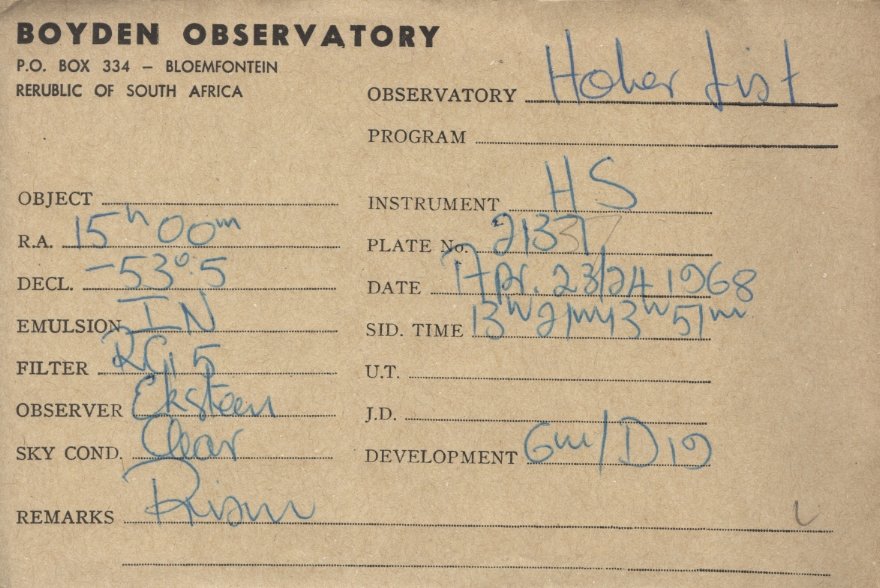 BOYDEN OBSERVATORY
P.O. BOX 334 – BLOEMFONTEIN
RERUBLIC OF SOUTH AFRICA
OBSERVATORY Hoher List
PROGRAM
OBJECT
INSTRUMENT HS
R.A. 15h 00m
PLATE No. 21337
DECL. -53°.5
DATE Apr. 23/24 1968
EMULSION IN
SID. TIME 13h 21m 13h 51m
FILTER RG 5
U.T.
OBSERVER Eksteen
J.D.
SKY COND. Clear
DEVELOPMENT 6m/D19
REMARKS Prism